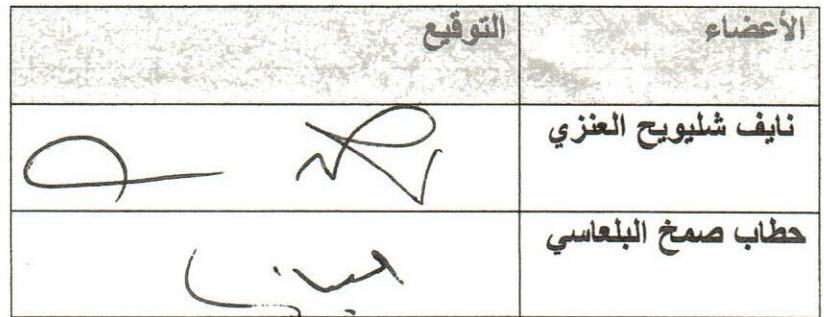 الأعضاء التوقيع
نايف شليويح العنزي
حطاب صمخ البلعاسي